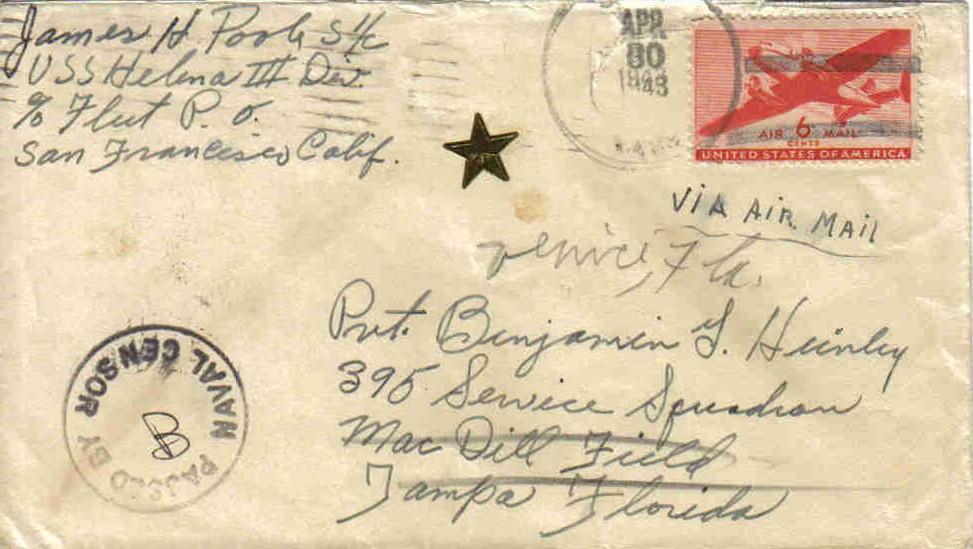 James H. Poole S1/c
USS Helena III Div.
c/o Fleet P. O.
San Francisco Calif.
APR
30
1943
AIR 6 MAIL
CENTS
UNITED STATES OF AMERICA
VIA AIR MAIL
Venice, Fla.
Pvt. Benjamin
395 Service Squadron
Mac Dill Field
Tampa Florida
PASSED BY NAVAL CENSOR
B